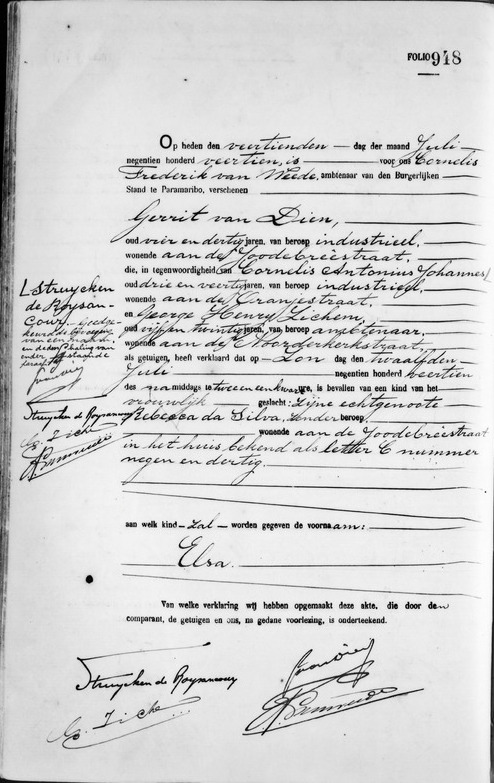 FOLIO 948
Op heden den veertienden dag der maand Juli
negentien honderd veertien, is voor ons Cornelis
Frederik van Weede, ambtenaar van den Burgerlijken
Stand te Paramaribo, verschenen
Gerrit van Dien,
oud vier en dertig jaren, van beroep industrieel,
wonende aan de Joodebreestraat,
die, in tegenwoordigheid van Cornelis Antonius Johannes
oud drie en veertig jaren, van beroep industrieel
wonende aan de Oranjestraat,
en George Henry Lichem,
oud vijf en twintig jaren, van beroep ambtenaar,
wonende aan de Noorderkerkstraat,
als getuigen, heeft verklaard dat op Zon dag den twaalfden
Juli negentien honderd veertien
des na middags te twee en een kwart ure, is bevallen van een kind van het
vrouwelijk geslacht: Zijne echtgenoote
Rebecca da Silva, zonder beroep
wonende aan de Joodebreestraat
in het huis bekend als letter C nummer
negen en dertig.
aan welk kind zal worden gegeven de voornaam:
Elsa.
Van welke verklaring wij hebben opgemaakt deze akte, die door den
comparant, de getuigen en ons, na gedane voorlezing, is onderteekend.
L Struycken
de Roysan-
cour
van een naam
en de
Struycken de Roysancour
Struycken de Roysancour